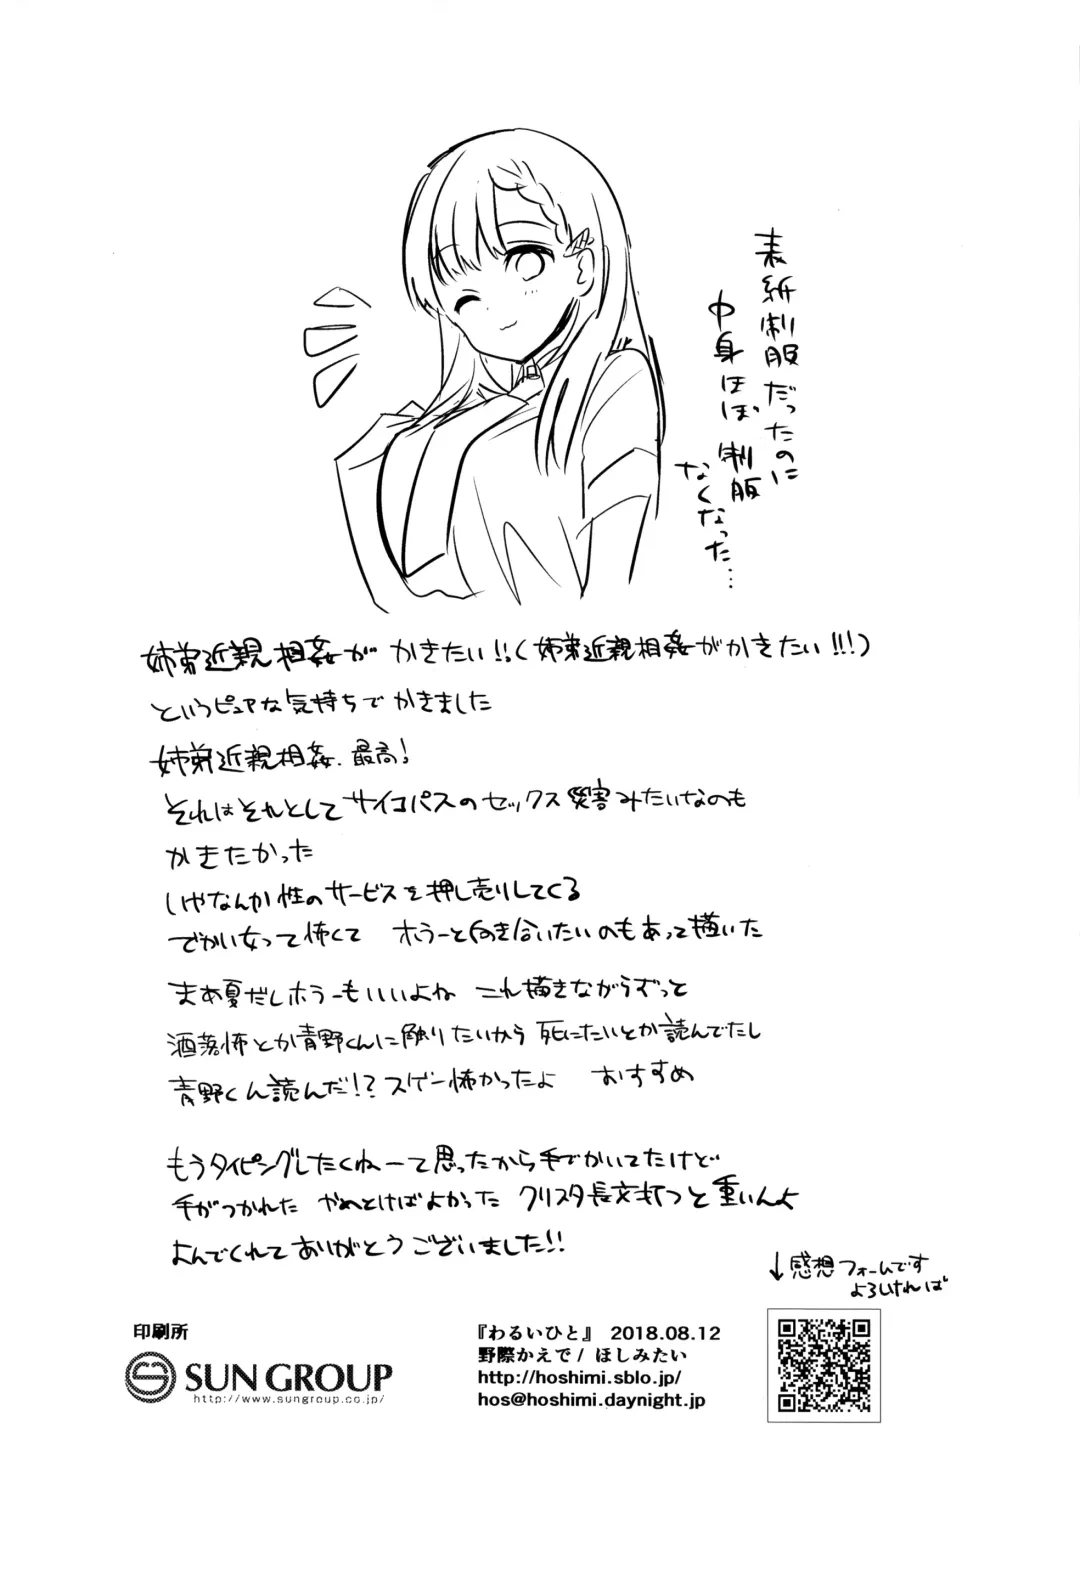 表紙制服だったのに
中身ほぼ制服
なくなった…
姉弟近親相姦が かきたい!!(姉弟近親相姦がかきたい!!!)
というピュアな気持ちでかきました
姉弟近親相姦、最高!
それはそれとしてサイコパスのセックス災害みたいなのも
かきたかった
いやなんか性のサービスを押し売りしてくる
でかい女って怖くて ホラーと向き合いたいのもあって描いた
まあ夏だしホラーもいいよね これ描きながらずっと
洒落怖とか青野くんに触りたいから死にたいとか読んでたし
青野くん読んだ!?スゲー怖かったよ おすすめ
もうタイピングしたくねーって思ったから手でかいてたけど
手がつかれた やめとけばよかった クリスタ長文打つと重いんよ
よんでくれてありがとうございました!!
↓感想フォームです
よろしければ
印刷所
SUN GROUP
http://www.sungroup.co.jp/
『わるいひと』 2018.08.12
野際かえで/ほしみたい
http://hoshimi.sblo.jp/
hos@hoshimi.daynight.jp